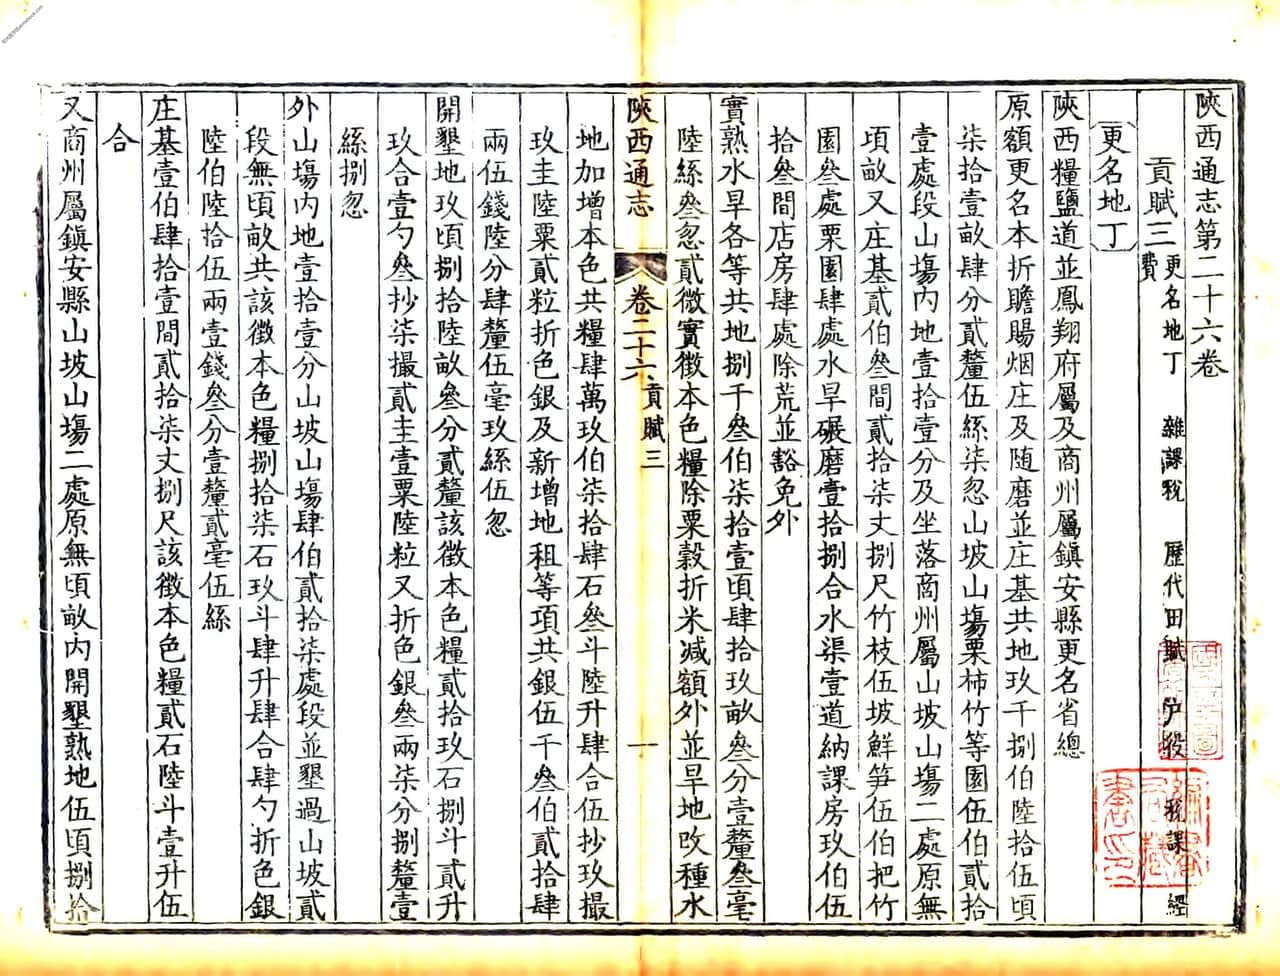 陝西通志第二十六卷
貢賦三 更名地丁 雜課稅 歷代田賦 戶役 稅課 經費
更名地丁
陝西糧鹽道並鳳翔府屬及商州屬鎮安縣更名省總
原額更名本折贍賜烟庄及随磨並庄基共地玖千捌伯陸拾伍頃
柒拾壹畝肆分貳釐伍絲柒忽山坡山塲栗柿竹等園伍伯貳拾
壹處段山塲内地壹拾壹分及坐落商州屬山坡山塲二處原無
頃畝又庄基貳伯叁間貳拾柒丈捌尺竹枝伍坡鮮笋伍伯把竹
園叁處栗園肆處水旱碾磨壹拾捌合水渠壹道納課房玖伯伍
拾叁間店房肆處除荒並豁免外
實熟水旱各等共地捌千叁伯柒拾壹頃肆拾玖畝叁分壹釐叁毫
陸絲叁忽貳微實徵本色糧除粟穀折米減額外並旱地改種水
陝西通志 卷二十六 貢賦三 一
地加增本色共糧肆萬玖伯柒拾肆石叁斗陸升肆合伍抄玖撮
玖圭陸粟貳粒折色銀及新增地租等項共銀伍千叁伯貳拾肆
兩伍錢陸分肆釐伍毫玖絲伍忽
開墾地玖頃捌拾陸畝叁分貳釐該徵本色糧貳拾玖石捌斗貳升
玖合壹勺叁抄柒撮貳圭壹粟陸粒又折色銀叁兩柒分捌釐壹
絲捌忽
外山塲内地壹拾壹分山坡山塲肆伯貳拾柒處段並墾過山坡貳
段無頃畝共該徵本色糧捌拾柒石玖斗肆升肆合肆勺折色銀
陸伯陸拾伍兩壹錢叁分壹釐貳毫伍絲
庄基壹伯肆拾壹間貳拾柒丈捌尺該徵本色糧貳石陸斗壹升伍
合
又商州屬鎮安縣山坡山塲二處原無頃畝内開墾熟地伍頃捌拾